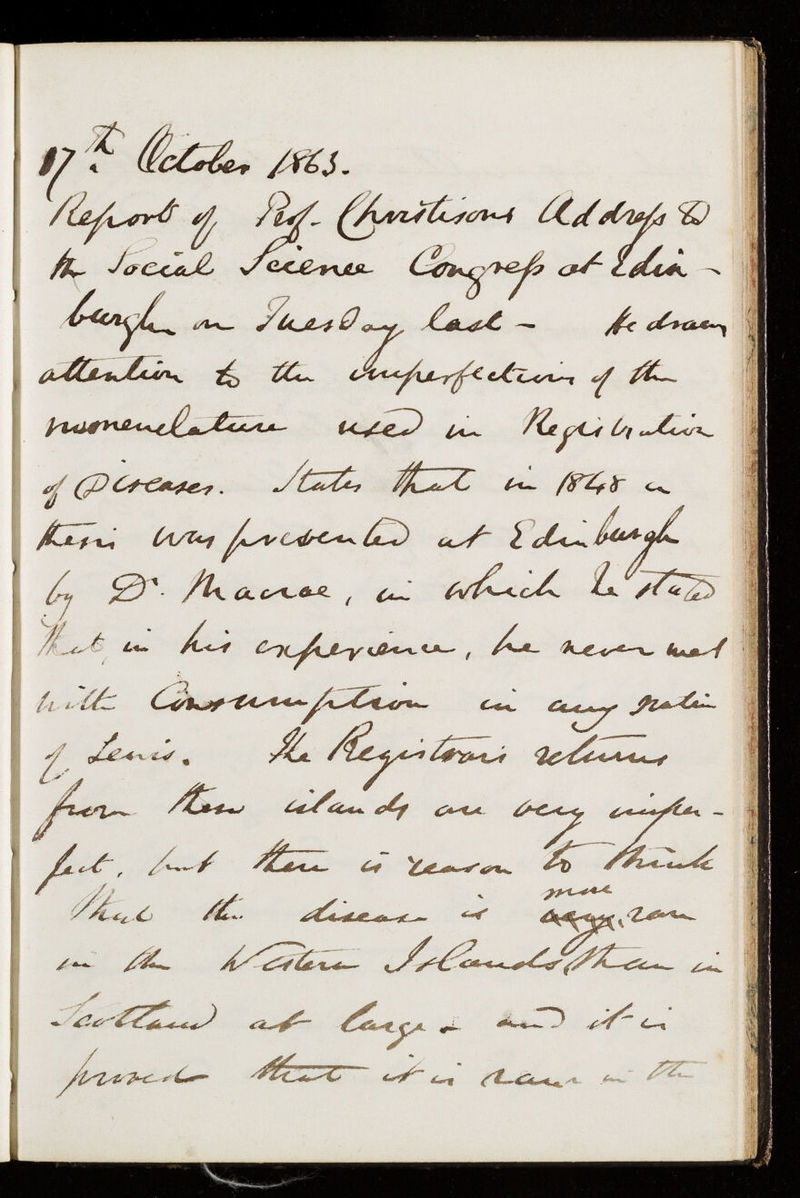 17th October 1863.
Report of Prof. Christisons Address to
the Social Science Congress at Edin-
burgh on Tuesday last - He draws
attention to the imperfections of the
nomenclature used in Registration
of Diseases. States that in 1848 a
thesis was presented at Edinburgh
by Dr. Macrae, in which he stated
that, in his experience, he never met
with Consumption in any native
of Lewis. The Registrars returns
from these islands are very imper-
fect, but there is reason to think
that the disease is very more rare
in the Western Islands, than in
Scotland at large - and it is
proved that it is rarer in the